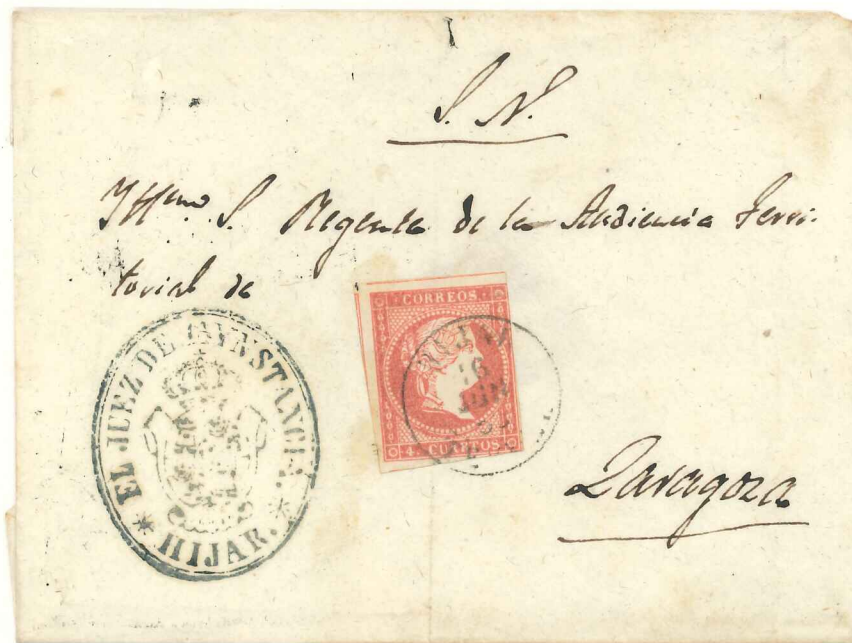 S. N.
Yllmo S. Regente de la Audiencia Terri-
torial de
CORREOS.
4. CUARTOS.
16
JUN
EL JUEZ DE 1ª YNSTANCIA
* HIJAR. *
Zaragoza